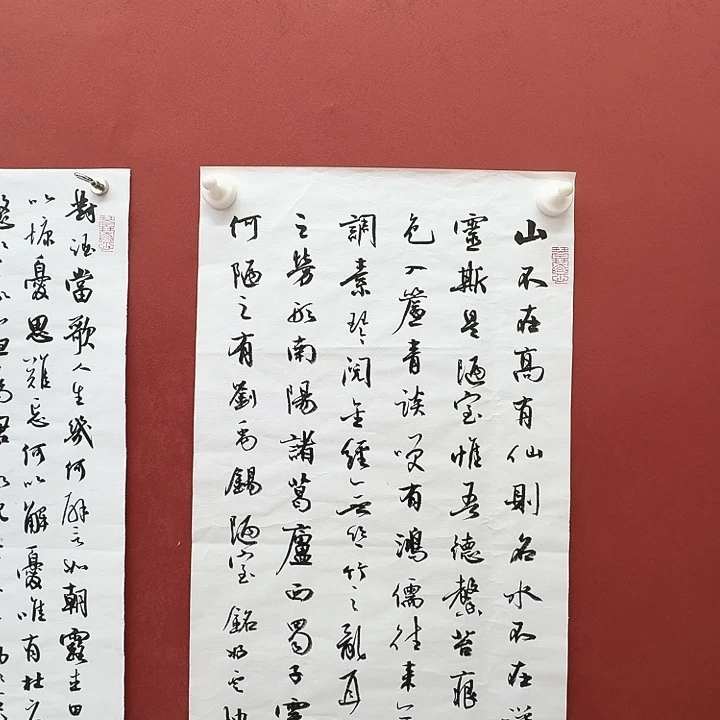 山不在高有仙則名水不在
靈斯是陋室惟吾德馨苔痕
色入簾青談笑有鴻儒往來無
調素琴閱金經無絲竹之亂耳
之勞形南陽諸葛廬西蜀子雲
何陋之有劉禹錫陋室銘
對酒當歌人生幾何譬如朝露去日
以慷憂思難忘何以解憂唯有杜康